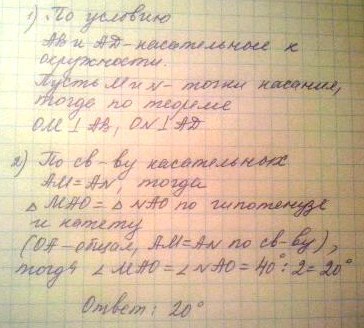 1) По условию
AB и AD - касательные к
окружности.
Пусть M и N - точки касания,
тогда по теореме
OM ⊥ AB, ON ⊥ AD
2) По св-ву касательных
AM = AN, тогда
△ MAO = △ NAO по гипотенузе
и катету
(OA - общая, AM = AN по св-ву),
тогда ∠ MAO = ∠ NAO = 40° : 2 = 20°
Ответ: 20°